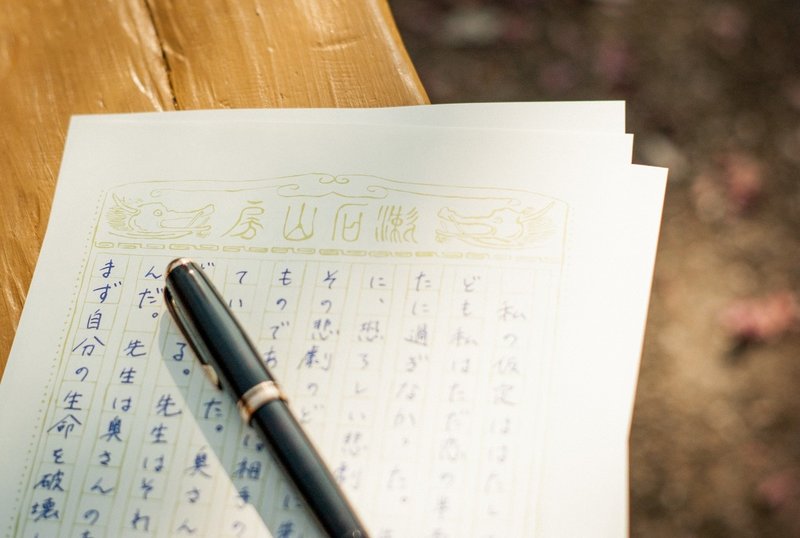 漱石山房
私の仮定ははたし
ども私はただ恋の半
たに過ぎなかった。
に、恐ろしい悲劇
その悲劇のど に
ものであ は相手の
てい た。奥さん
る。先生はそれ
んだ。先生は奥さんの
まず自分の生命を破壊し